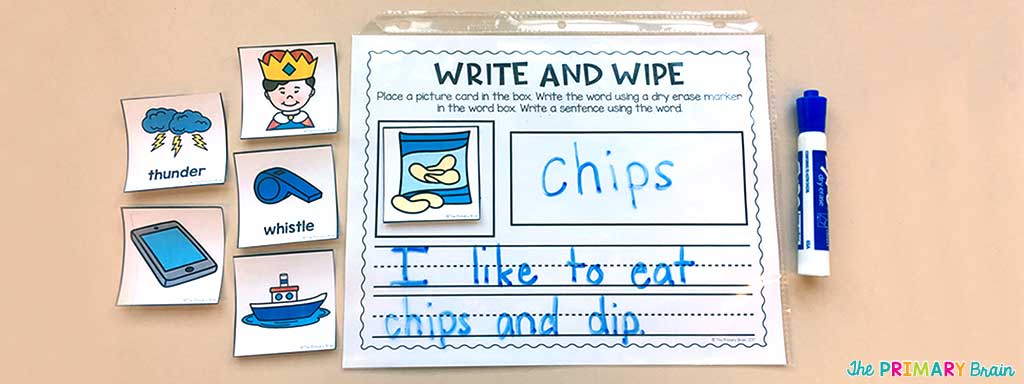 WRITE AND WIPE
Place a picture card in the box. Write the word using a dry erase marker
in the word box. Write a sentence using the word.
thunder
whistle
chips
I like to eat
chips and dip.
dry erase
The PRIMARY Brain